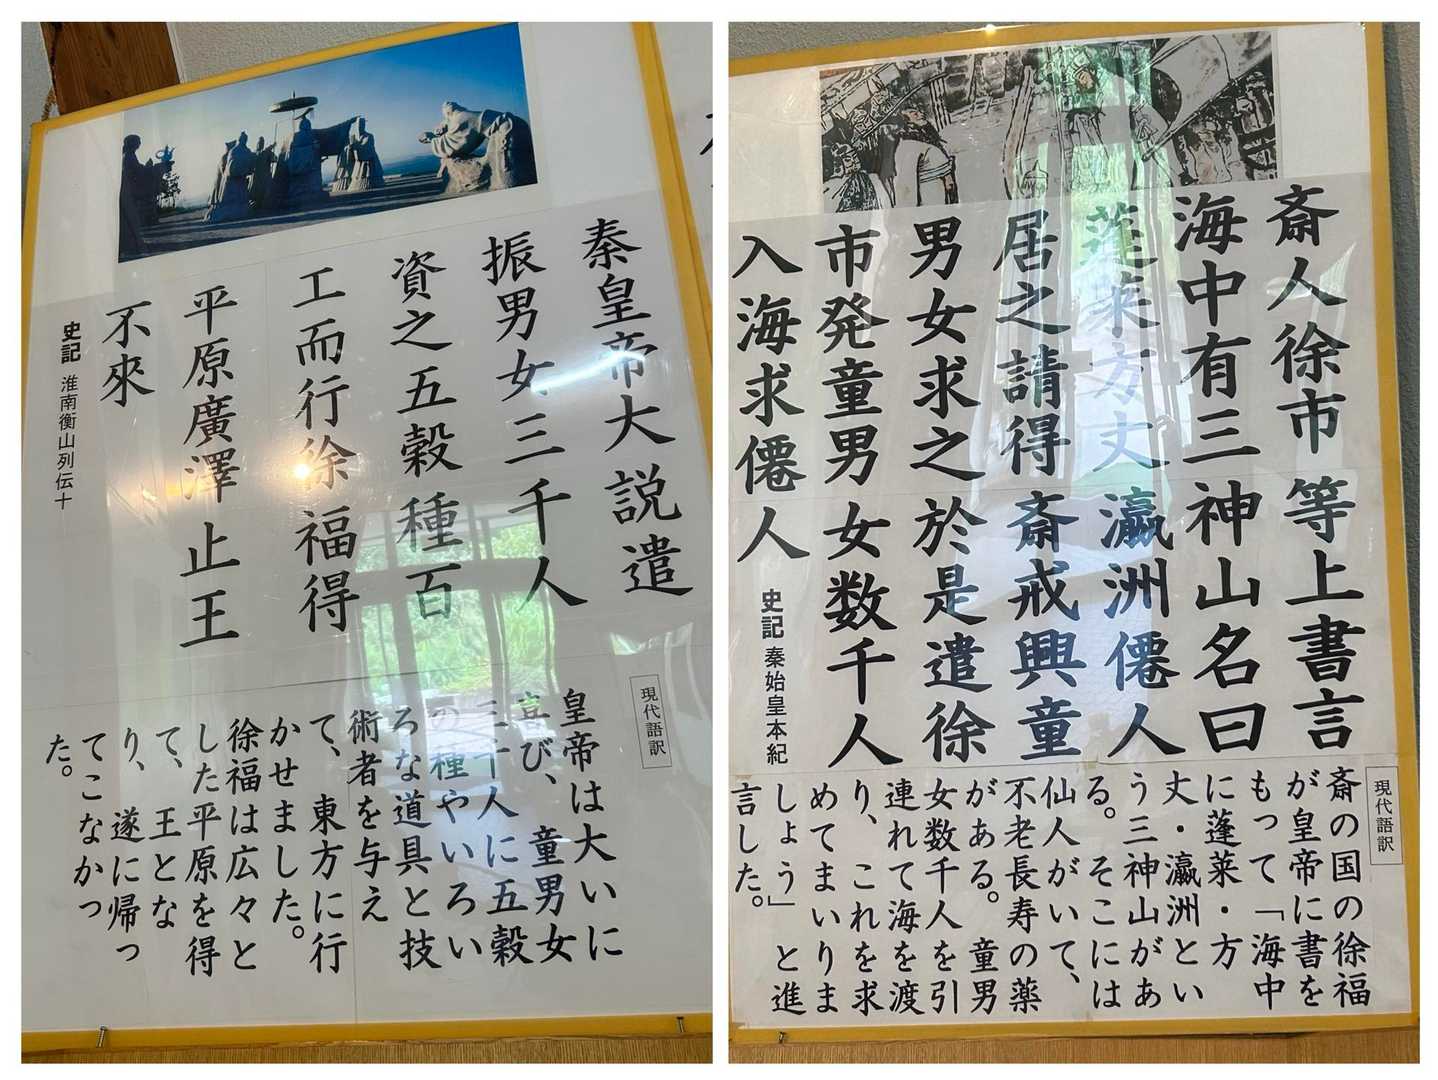 秦皇帝大説遣
振男女三千人
資之五穀種百
工而行徐福得
平原廣澤止王
不來
史記 淮南衡山列伝十
現代語訳
皇帝は大いに
喜び、童男女
三千人に五穀
の種やいろい
ろな道具と技
術者を与え
て、東方に行
かせました。
徐福は広々と
した平原を得
て、王とな
り、遂に帰っ
てこなかっ
た。
斎人徐市等上書言
海中有三神山名曰
蓬莱方丈瀛洲僊人
居之請得斎戒興童
男女求之於是遣徐
市発童男女数千人
入海求僊人
史記 秦始皇本紀
現代語訳
斎の国の徐福
が皇帝に書を
もって「海中
に蓬莱・方
丈・瀛洲とい
う三神山があ
る。そこには
仙人がいて、
不老長寿の薬
がある。童男
女数千人を引
連れて海を渡
り、これを求
めてまいりま
しょう」と進
言した。